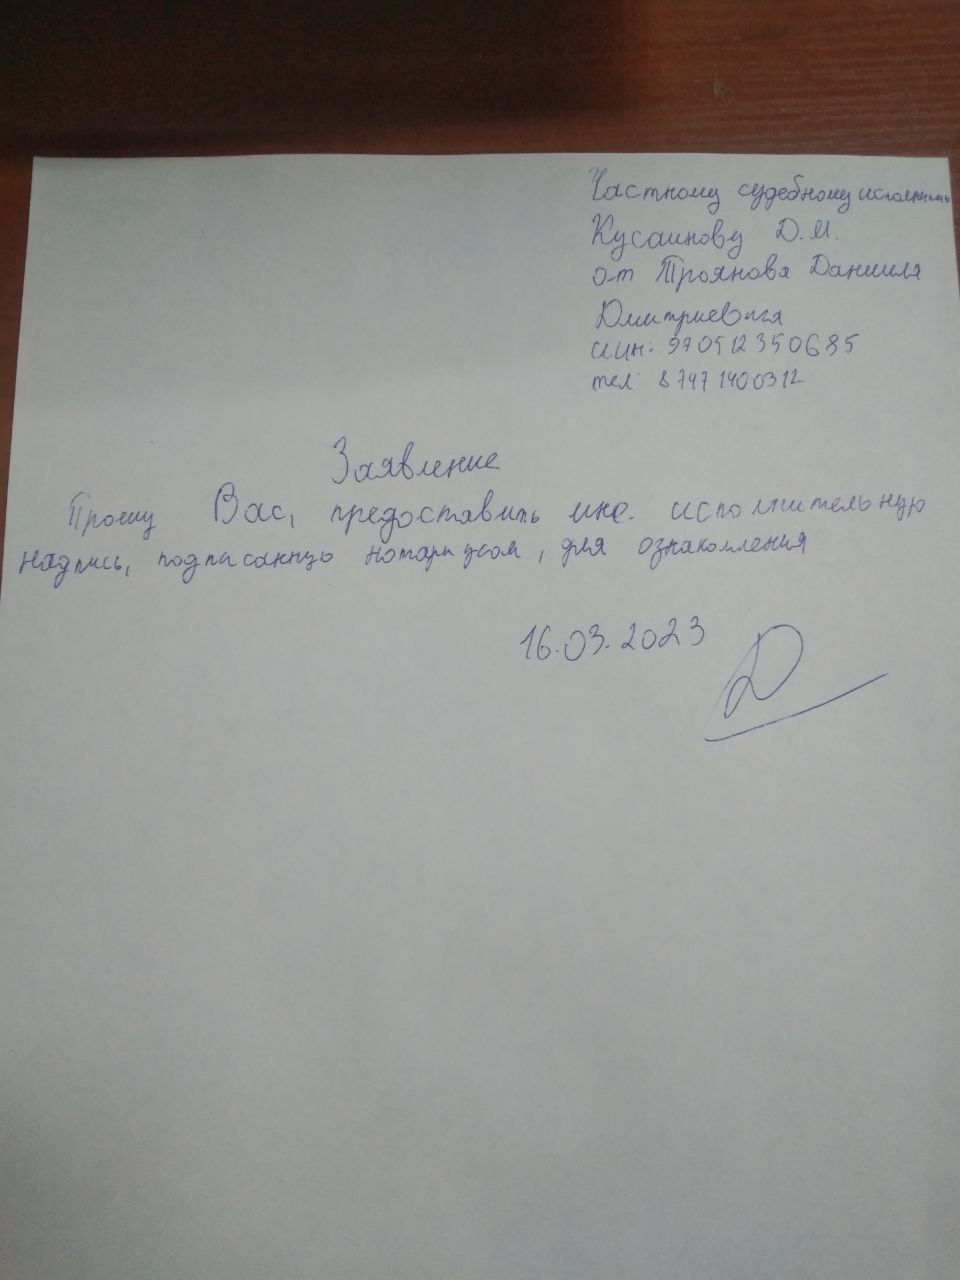 Частному судебному исполнитель
Кусаинову Д.М.
от Троянова Даниила
Дмитриевича
ИИН: 970512350685
тел: 87471400312
Заявление
Прошу Вас, предоставить мне исполнительную
надпись, подписанную нотариусом, для ознакомления
16.03.2023